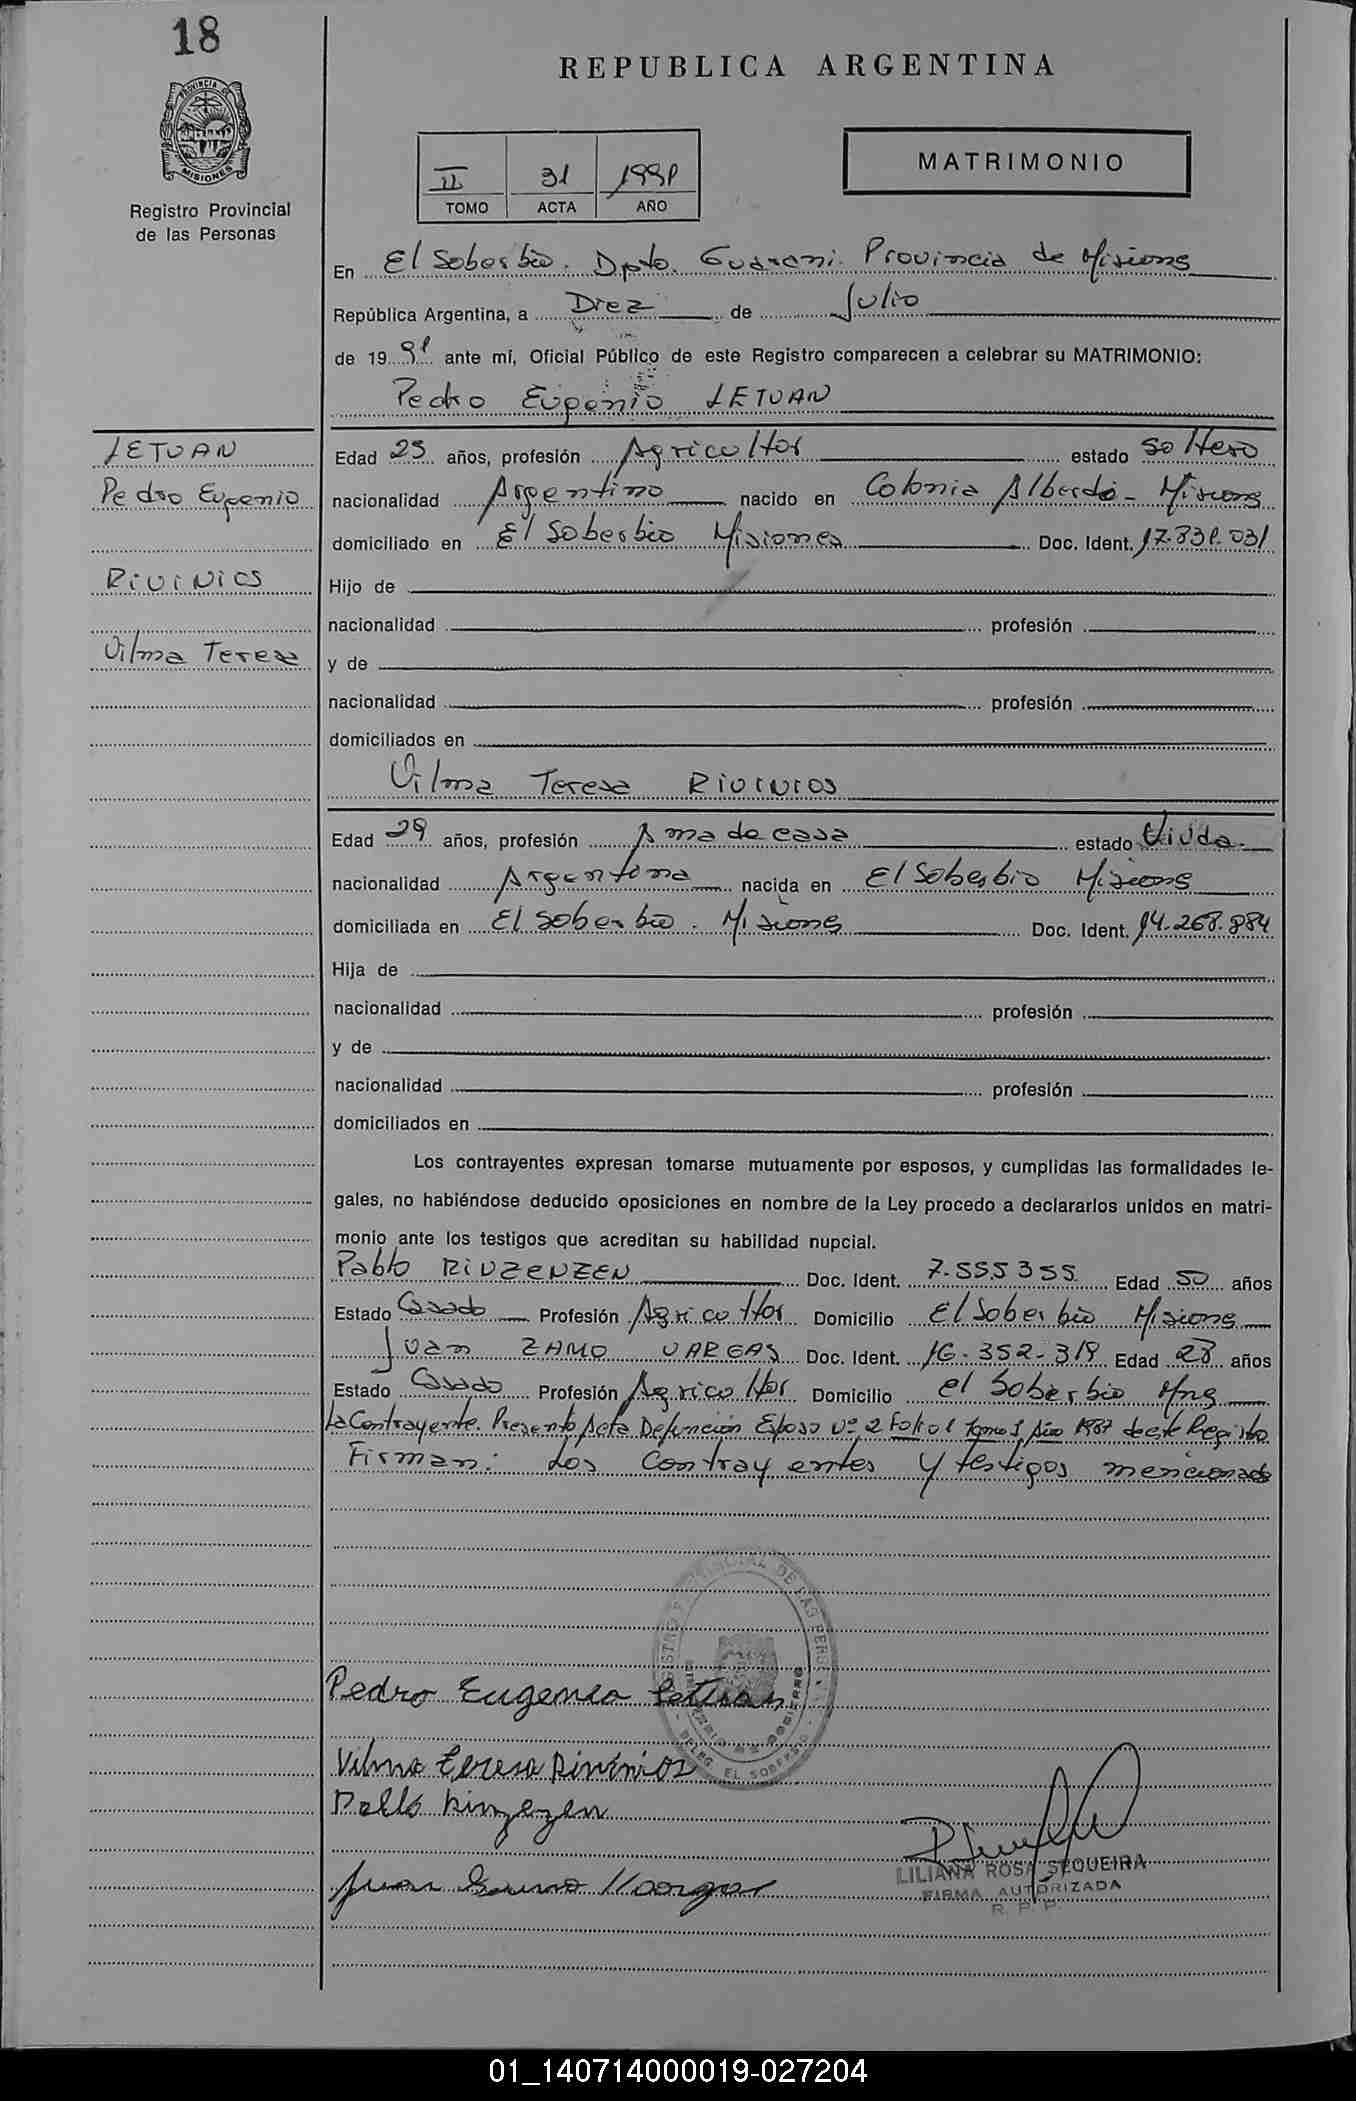 18
REPUBLICA ARGENTINA
PROVINCIA DE
MISIONES
Registro Provincial
de las Personas
II 31 1991
TOMO ACTA AÑO
MATRIMONIO
En El Soberbio. Dpto. Guarani. Provincia de Misiones
República Argentina, a Diez de Julio
de 19 91 ante mí, Oficial Público de este Registro comparecen a celebrar su MATRIMONIO:
Pedro Eugenio LETUAN
LETUAN
Pedro Eugenio
Vilma Teresa
Edad 25 años, profesión Agricultor estado soltero
nacionalidad Argentino nacido en Colonia Alberdi - Misiones
domiciliado en El Soberbio Misiones Doc. Ident. 17.831.031
Hijo de
nacionalidad profesión
y de
nacionalidad profesión
domiciliados en
Vilma Teresa
Edad 29 años, profesión Ama de casa estado Viuda.
nacionalidad Argentina nacida en El Soberbio Misiones
domiciliada en El Soberbio. Misiones Doc. Ident. 14.268.884
Hija de
nacionalidad profesión
y de
nacionalidad profesión
domiciliados en
Los contrayentes expresan tomarse mutuamente por esposos, y cumplidas las formalidades le-
gales, no habiéndose deducido oposiciones en nombre de la Ley procedo a declararlos unidos en matri-
monio ante los testigos que acreditan su habilidad nupcial.
Pablo Doc. Ident. 7.555355 Edad 50 años
Estado Casado Profesión Agricultor Domicilio El Soberbio Misiones
Juan ZAMO VARGAS Doc. Ident. 16.352.319 Edad 28 años
Estado Casado Profesión Agricultor Domicilio el Soberbio Mnes
La Contrayente. Presento Acta Defunción Esposo Nº 2 Folio 1 Tomo I Año 1987 de este Registro.
Firman: Los Contrayentes y testigos mencionados
Pedro Eugenio Letuan
Vilma Teresa
Juan Vargas
LILIANA ROSA SEQUEIRA
FIRMA AUTORIZADA
R. P. P.
01_140714000019-027204